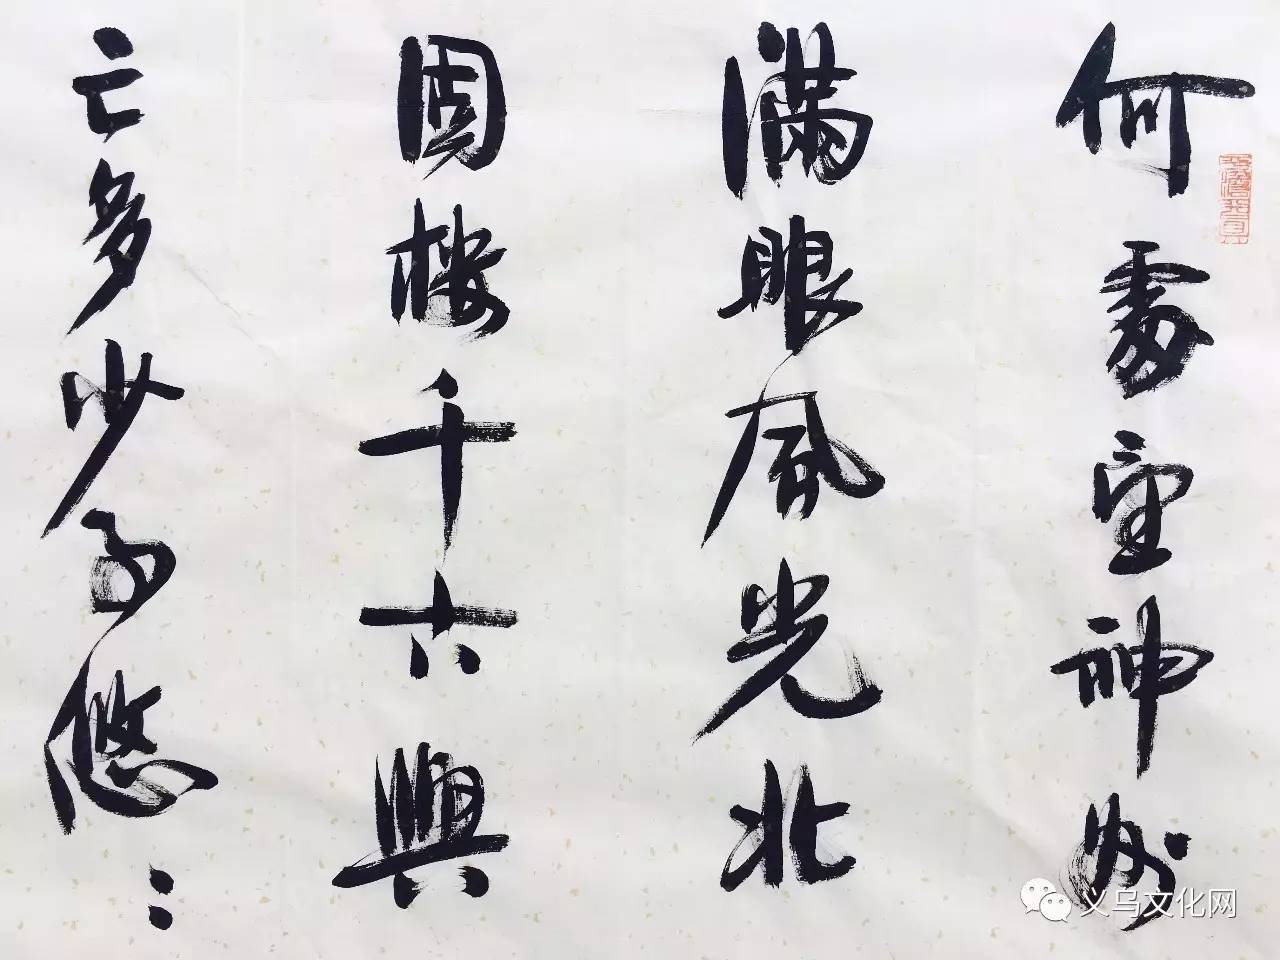 何處望神州
滿眼風光北
固樓千六興
亡多少事悠〻
义乌文化网